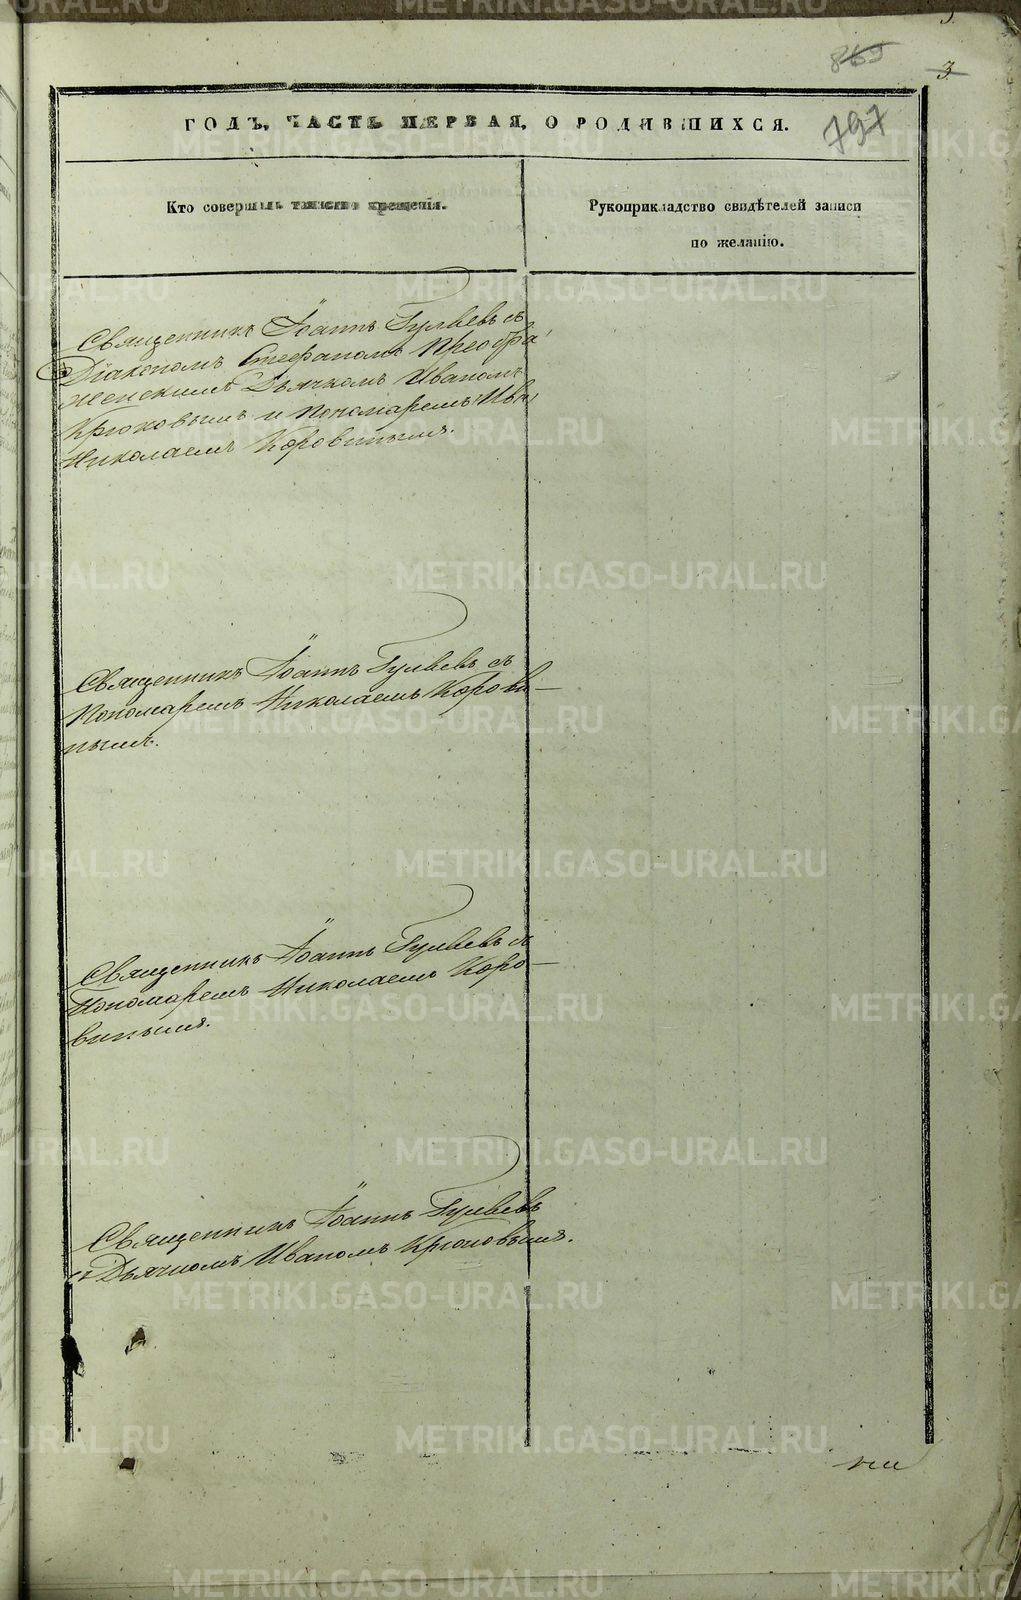 869
3
797
ГОДЪ, ЧАСТЬ ПЕРВАЯ, О РОДИВШИХСЯ.
Кто совершалъ таинство крещенія.
Рукоприкладство свидѣтелей записи
по желанію.
Священникъ Іоаннъ Гуляевъ съ
Діакономъ Стефаномъ Преобра
женскимъ Дьячкомъ Иваномъ
Крюковымъ и Пономаремъ
Николаемъ Коровинымъ.
Священникъ Іоаннъ Гуляевъ съ
Пономаремъ Николаемъ Корови—
нымъ.
Священникъ Іоаннъ Гуляевъ съ
Пономаремъ Николаемъ Коро—
винымъ.
Священникъ Іоаннъ Гуляевъ
съ Дьячкомъ Иваномъ Крюковымъ.
METRIKI.GASO-URAL.RU